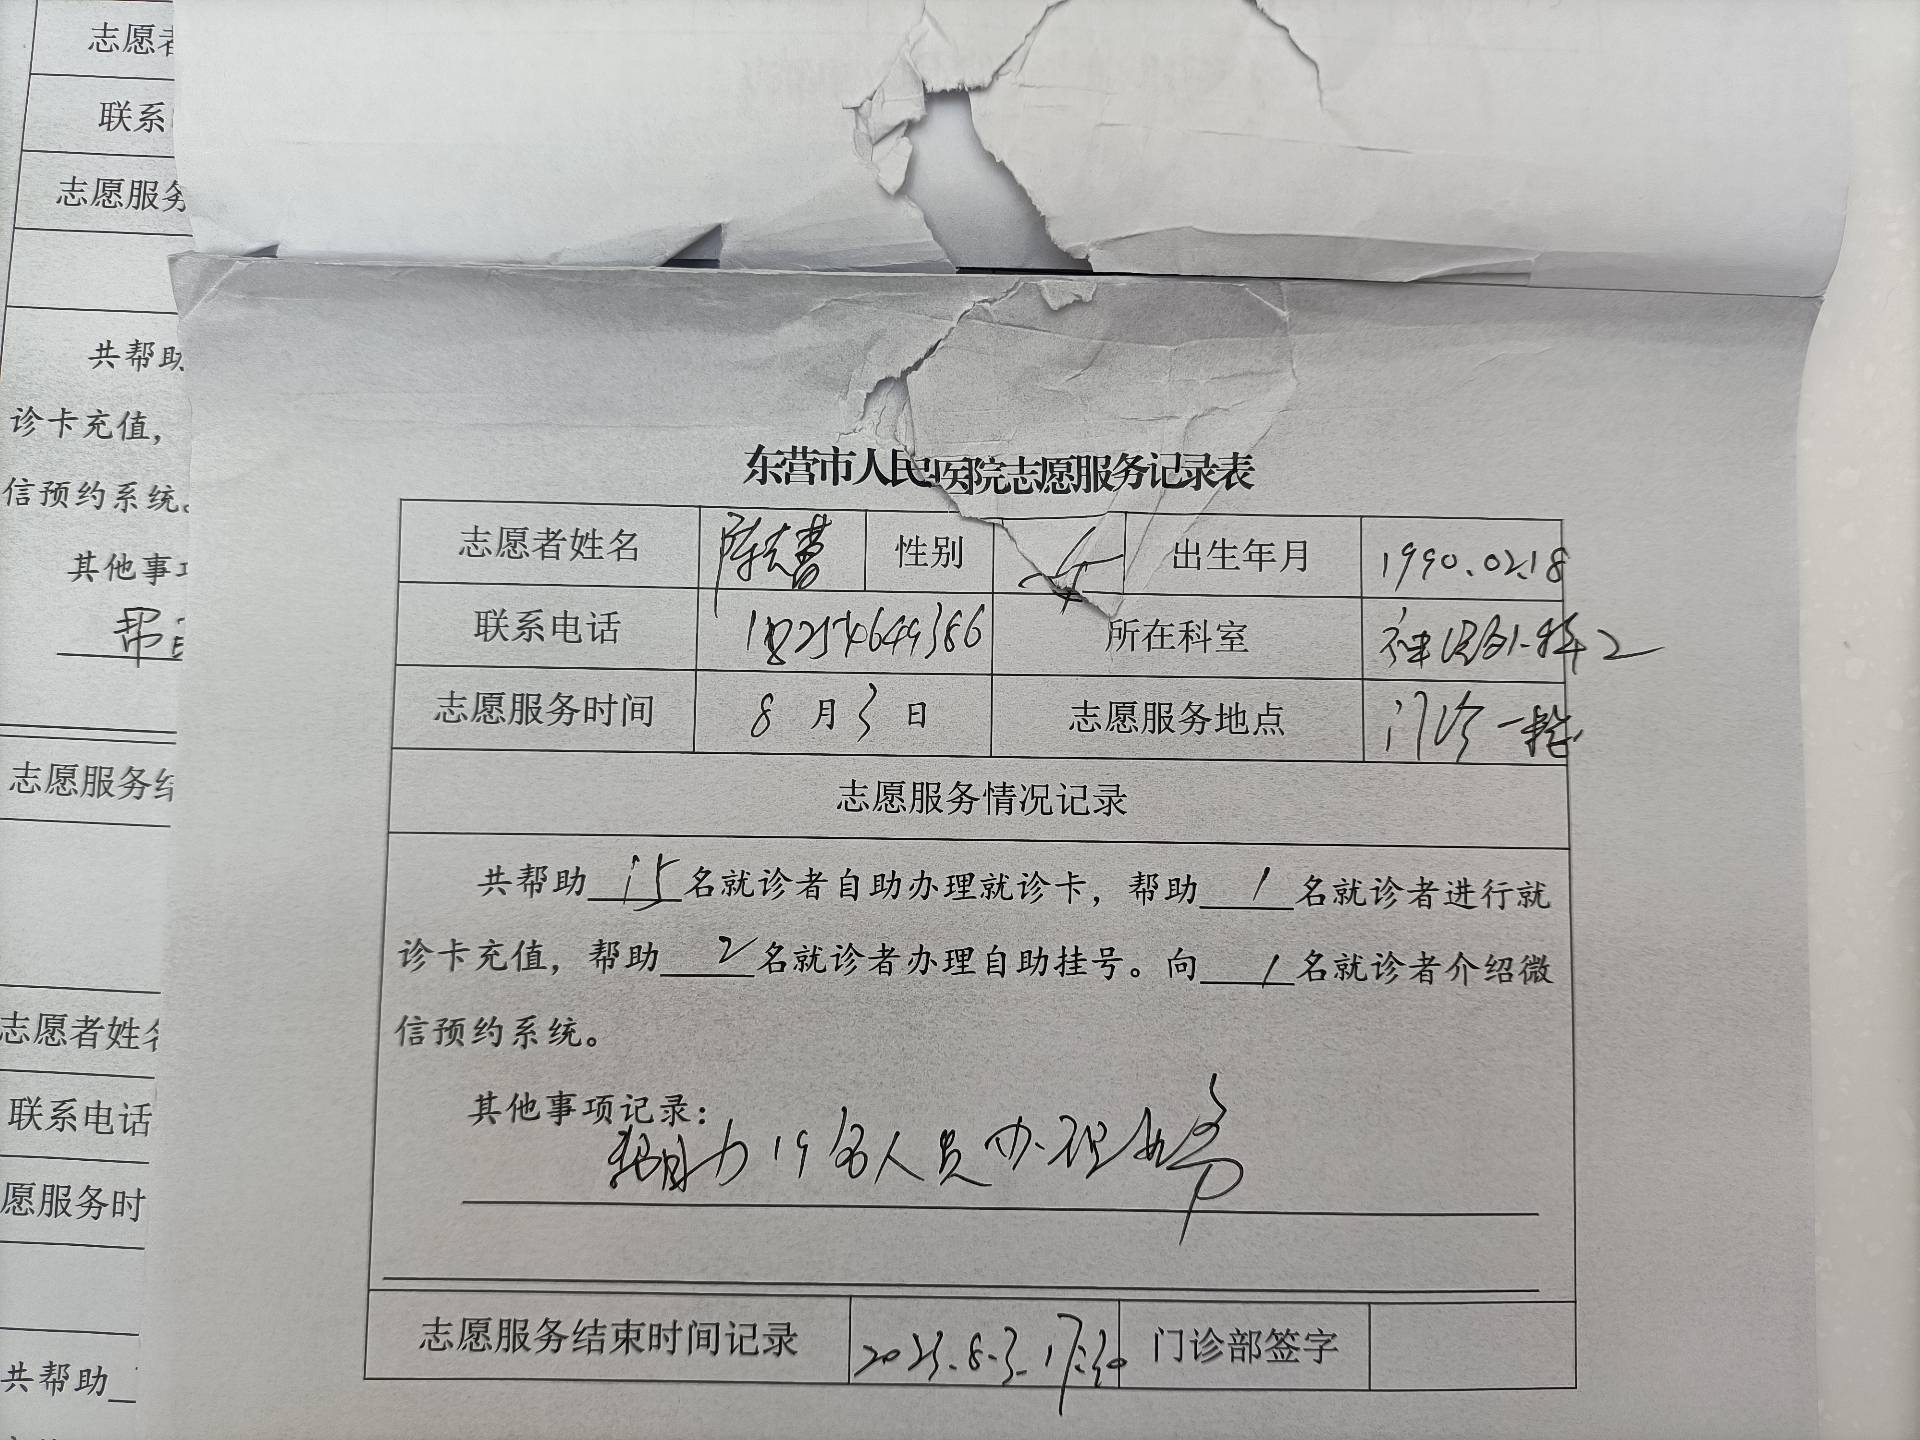 志愿者
联系
志愿服务
共帮助
诊卡充值，
信预约系统。
其他事项
帮
志愿服务结
志愿者姓名
联系电话
愿服务时
共帮助
东营市人民医院志愿服务记录表
志愿者姓名 陈志蕾 性别 女 出生年月 1990.02.18
联系电话 18254649386 所在科室 神经外科2
志愿服务时间 8月3日 志愿服务地点 门诊一楼
志愿服务情况记录
共帮助15名就诊者自助办理就诊卡，帮助1名就诊者进行就
诊卡充值，帮助2名就诊者办理自助挂号。向1名就诊者介绍微
信预约系统。
其他事项记录：
帮助19名人员办理业务
志愿服务结束时间记录 2023.8.3.17:30 门诊部签字